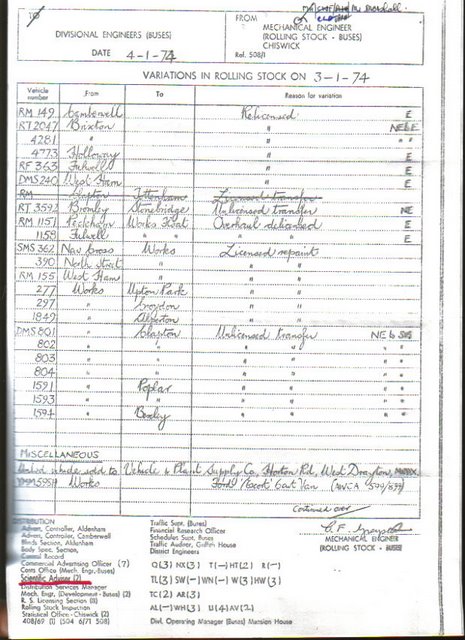 TO
FROM
MECHANICAL ENGINEER
(ROLLING STOCK - BUSES)
CHISWICK
DIVISIONAL ENGINEERS (BUSES)
DATE 4-1-74
Ref. 508/1
VARIATIONS IN ROLLING STOCK ON 3-1-74
Vehicle number From To Reason for variation
RM 149 Camberwell Relicensed E
RT 2047 Brixton " NE6E
4281 " " " "
4773 Holloway " E
RF 363 Fulwell " E
DMS 240 West Ham " E
RM Clapton Tottenham Licensed transfer
RT 3592 Bromley Stonebridge Unlicensed transfer NE
RM 1157 Peckham Works Float Overhaul delicensed E
1158 Fulwell " " " " E
SMS 362 New Cross Works Licensed repaint
390 North Street " " "
RM 155 West Ham " " "
277 Works Upton Park " "
297 " Croydon " "
1849 " Alperton " "
DMS 801 " Clapton Unlicensed transfer NE 6
802 " " " " " "
803 " " " " " "
804 " " " " " "
1591 " Poplar " " " "
1593 " " " " " "
1594 " Bexley " " " "
MISCELLANEOUS
vehicle sold to Vehicle & Plant Supply Co, Horton Rd, West Drayton,
595H Works Ford 'Escort' 6cwt Van
Continued over
MECHANICAL ENGINEER
(ROLLING STOCK - BUSES)
DISTRIBUTION
Advert. Controller, Aldenham
Advert. Controller, Camberwell
Blinds Section, Aldenham
Body Spec. Section,
Central Record
Commercial Advertising Officer (7)
Costs Office (Mech. Engr. Buses)
Scientific Adviser (2)
Distribution Services Manager
Mech. Engr. (Development - Buses) (2)
R. S. Licensing Section (8)
Rolling Stock Inspection
Statistical Office - Chiswick (2)
408/69 (1) (504 6/71 508)
Traffic Supt. (Buses)
Financial Research Officer
Schedules Supt. Buses
Traffic Auditor, Griffith House
District Engineers
Q(3) NX(3) T(—) HT(2) R(—)
TL(3) SW(—) WN(—) W(3) HW(3)
TC(2) AR(3)
AL(—) WH(3) U(4) AV(2)
Divl. Operating Manager (Buses) Mansion House